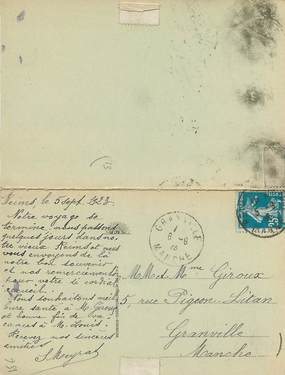 Reims, le 5 sept. 1923.
Notre voyage se
termine, nous passons
quelques jours dans no-
tre vieux Reims et nous
vous envoyons de là
notre bon souvenir
et nos remerciements
pour votre si cordial
accueil.
Nous souhaitons meil-
leure santé à M. Giroux
et bonne fin de va-
cances à M. Louis.
Recevez nos sincères
amitiés
GRANVILLE
MANCHE
M.M et Mme Giroux
5, rue Pigeon-Litan
Granville
Manche